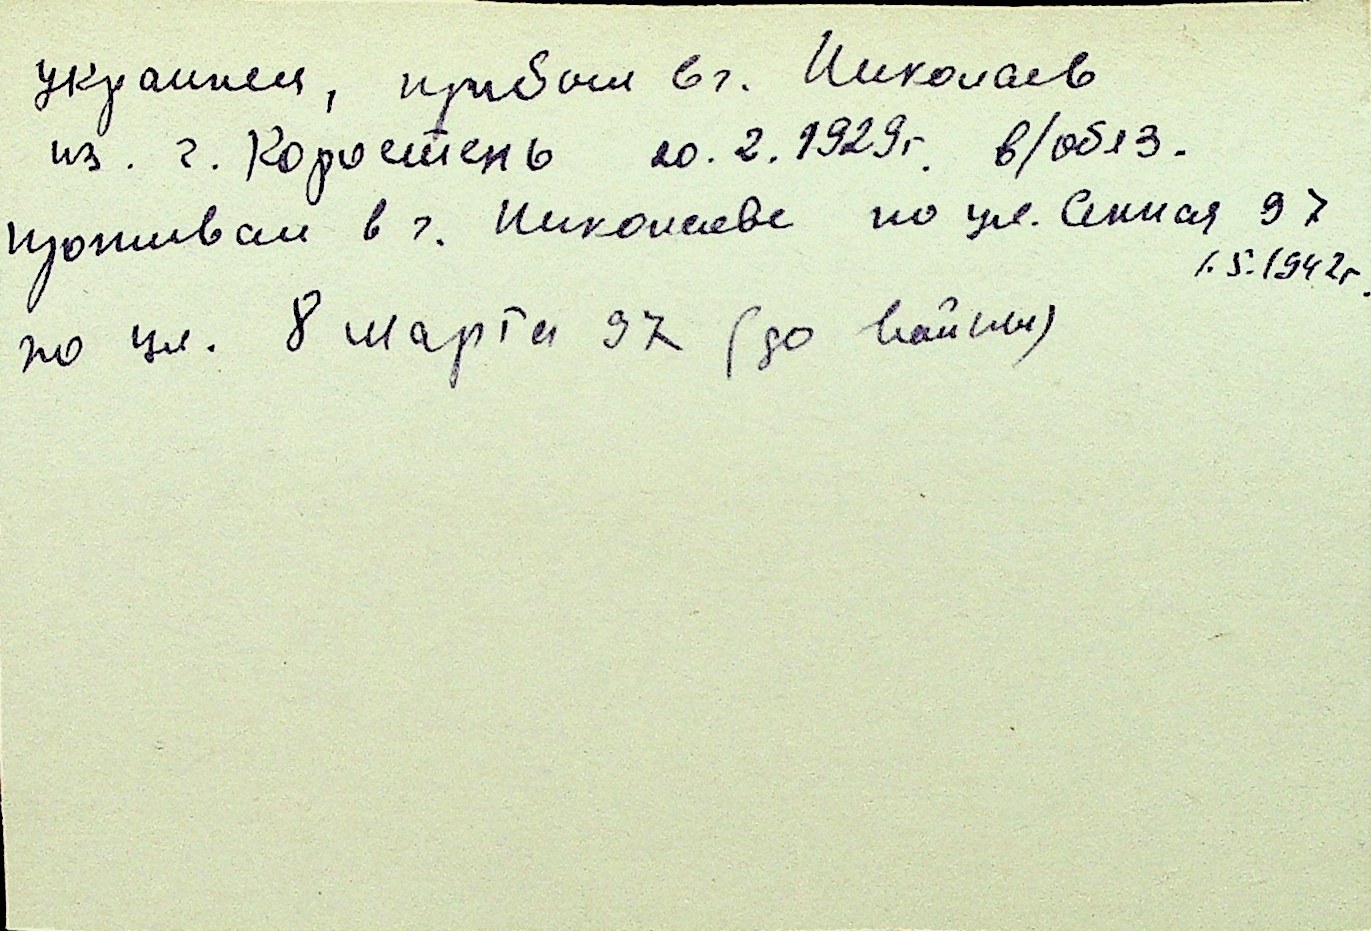 украинец, прибыл в г. Николаев
из. г. Коростень 20.2.1929г. в/обяз.
проживал в г. Николаеве по ул. Сенная 97
1.5.1942г.
по ул. 8 марта 97 (до войны)